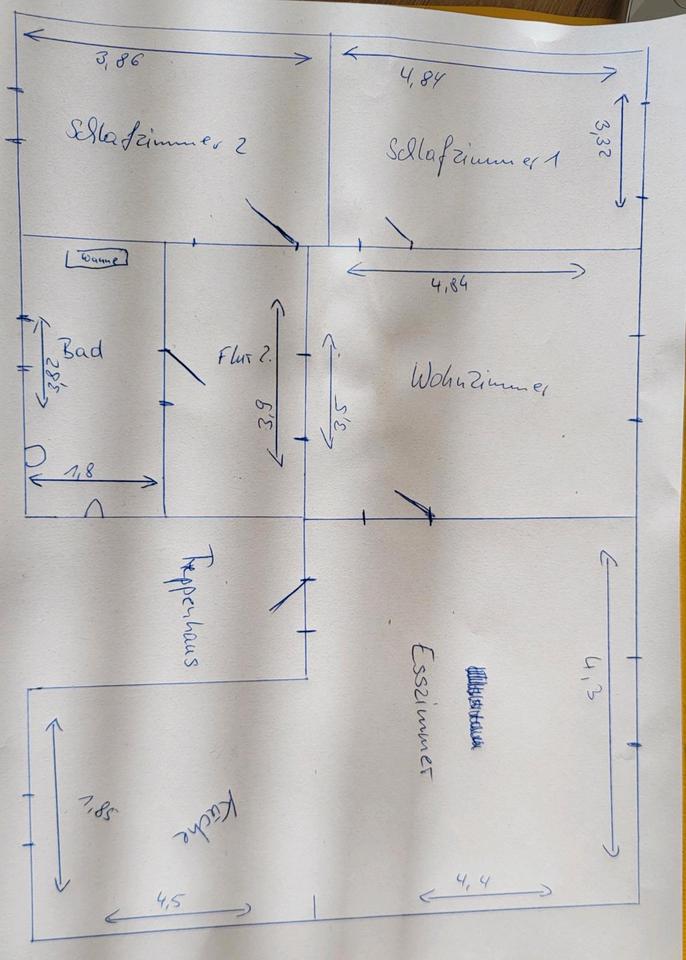 3,86
4,84
Schlafzimmer 2
Schlafzimmer 1
3,32
Wanne
4,84
Bad
3,82
Flur 2.
3,9
3,5
Wohnzimmer
1,8
Treppenhaus
Esszimmer
4,3
1,85
Küche
4,5
4,4